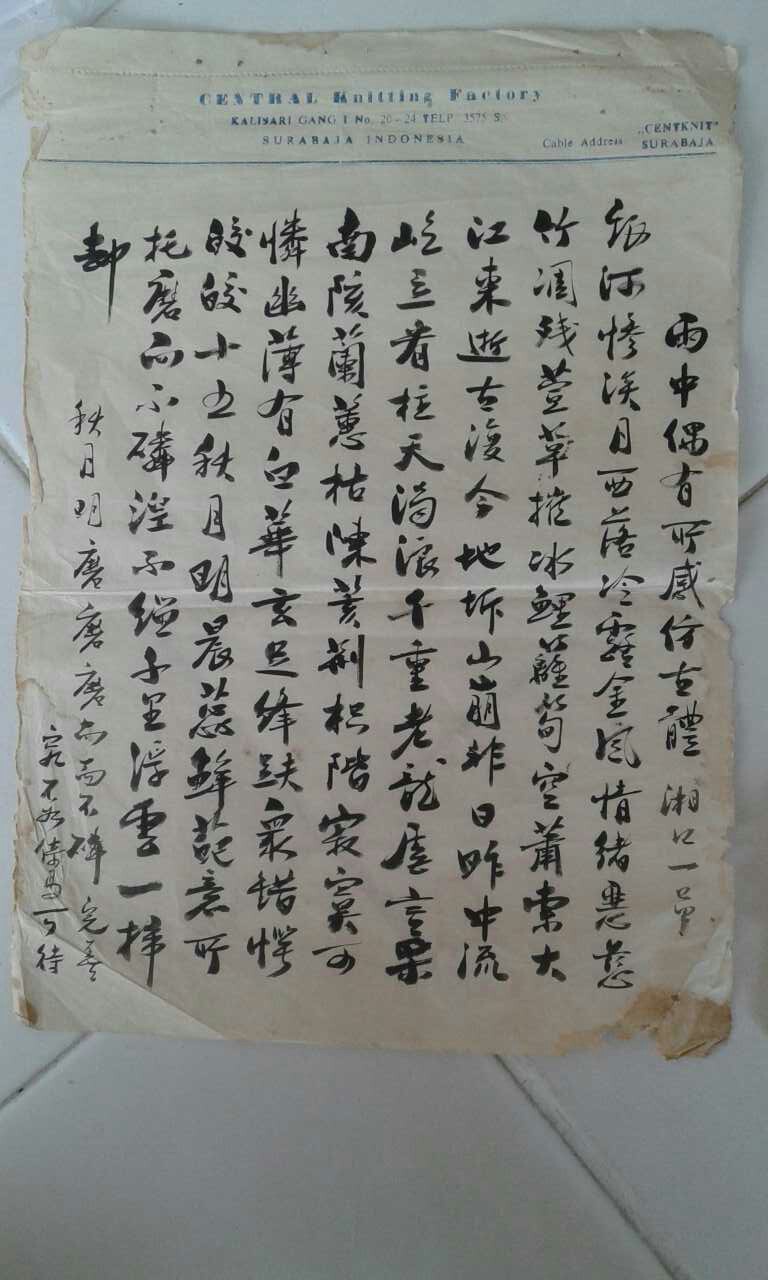 CENTRAL Knitting Factory
KALISARI GANG I No. 20-24 TELP. 3575 S.
SURABAJA INDONESIA
Cable Address: „CENTKNIT"
SURABAJA
雨中偶有所感仿古體 湘江一
河慘淡月西落冷露金風情緒悪慈
竹凋殘萱草摧冰鯉蘿筍空蕭索大
江東逝古復今地坼山崩非日昨中流
屹立者柱天濁浪千重老龍虐言果
南陔蘭蕙枯陳荄荆枳階寂寞可
憐幽薄有白華玄足絳趺衆錯愕
皎皎十五秋月明晨蕊鮮葩意所
托磨而不磷涅不緇千里浮雲一掃
却
秋月明磨磨磨而不磷
不如 可待